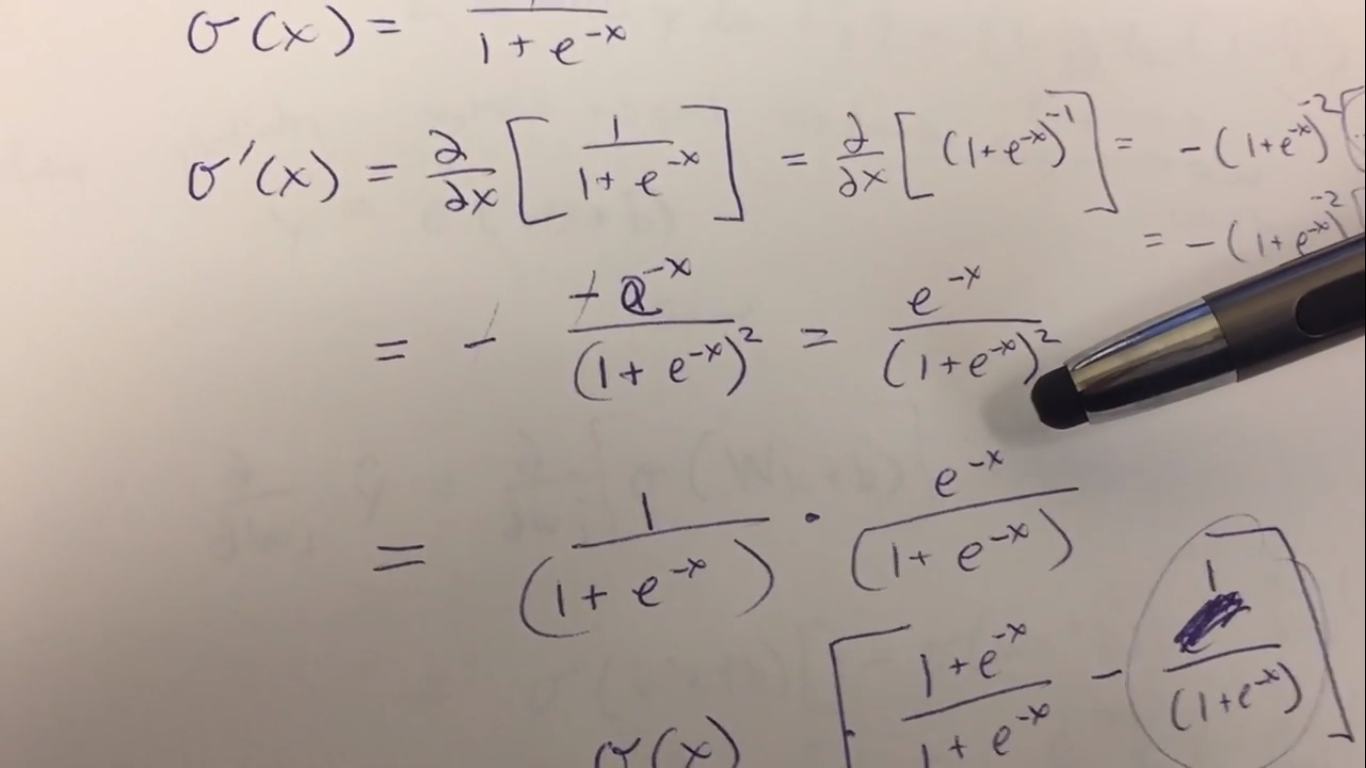 σ(x) = 1 / (1 + e^{-x})
σ'(x) = ∂/∂x [ 1 / (1 + e^{-x}) ] = ∂/∂x [ (1+e^{-x})^{-1} ] = -(1+e^{-x})^{-2} [
= -(1+e^{-x})^{-2} [
= - (-e^{-x}) / (1 + e^{-x})^2 = e^{-x} / (1+e^{-x})^2
= 1 / (1 + e^{-x}) · e^{-x} / (1 + e^{-x})
σ(x) [ (1+e^{-x}) / (1 + e^{-x}) - 1 / (1+e^{-x}) ]